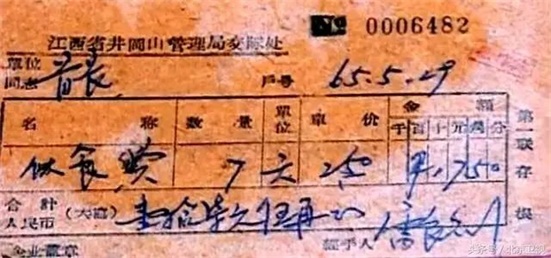 № 0006482
江西省井岡山管理局交际处
單位
同志 首長 戶号 65.5.29
名 称 數 量 單位 單 价 金 額
千百十元角分
伙食费 7 天 2.50 17.50
合計
人民币 (大寫) 壹拾柒元伍角
經手人
企业蓋章
第一联存根
头条号